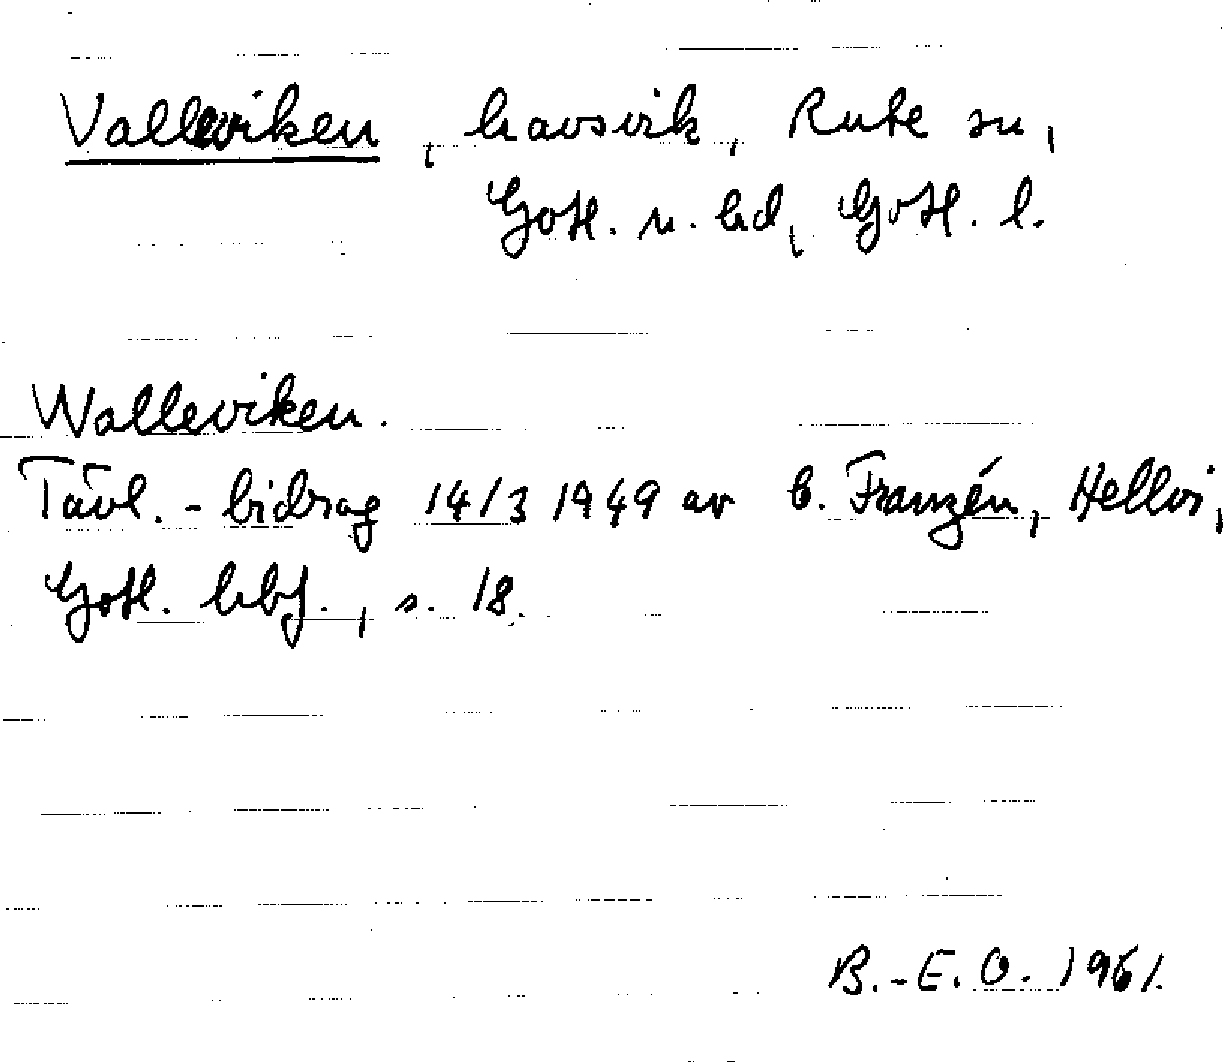 Valleviken, havsvik, Rute sn,
Gotl. n. hd, Gotl. l.
Walleviken.
Tävl.-bidrag 14/3 1949 av B. Franzén, Hellvi,
Gotl. hbf., s. 18.
B.-E.O. 1961.